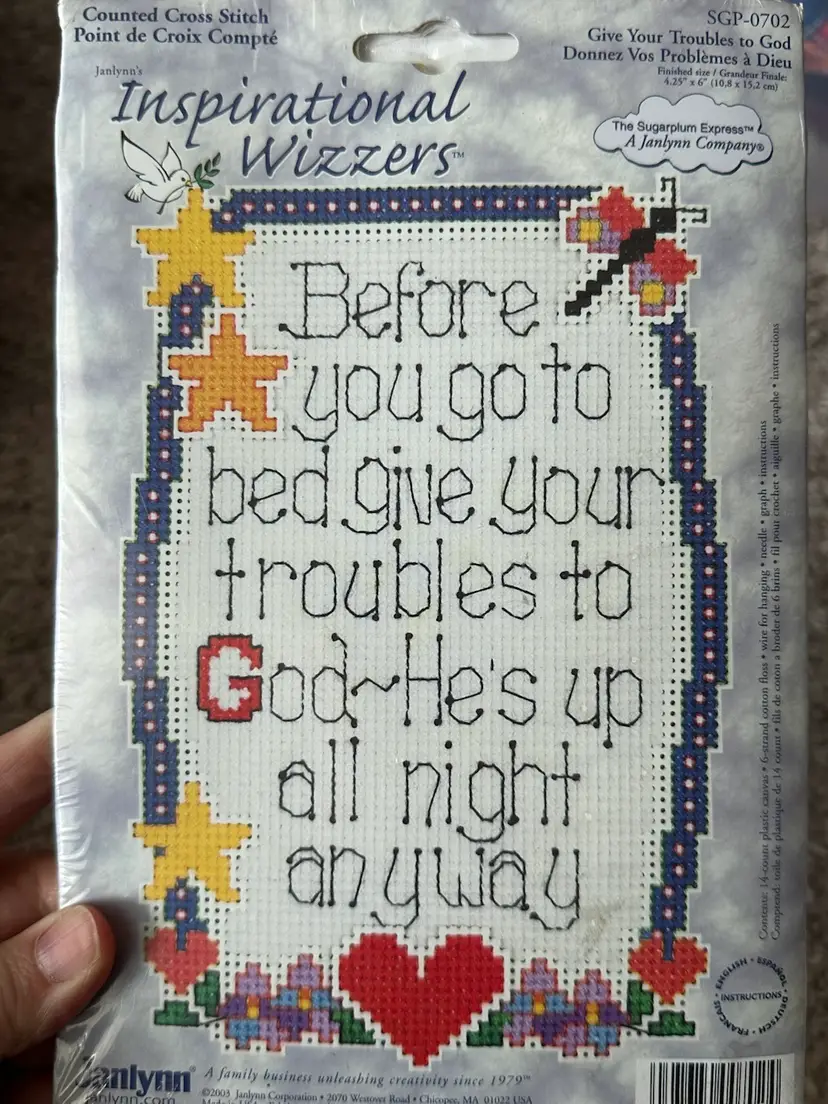 Counted Cross Stitch
Point de Croix Compté
SGP-0702
Give Your Troubles to God
Donnez Vos Problèmes à Dieu
Finished size / Grandeur Finale:
4.25" x 6" (10,8 x 15,2 cm)
Janlynn's
Inspirational
Wizzers™
The Sugarplum Express™
A Janlynn Company®
Before
you go to
bed give your
troubles to
God~He's up
all night
anyway
Contents: 14-count plastic canvas • 6-strand cotton floss • wire for hanging • needle • graph • instructions
Comprend: toile de plastique de 14 count • fils de coton a broder de 6 brins • fil pour crochet • aiguille • graphe • instructions
ENGLISH • ESPAÑOL • DEUTSCH • FRANÇAIS •
INSTRUCTIONS
Janlynn®
janlynn.com
A family business unleashing creativity since 1979™
©2003 Janlynn Corporation • 2070 Westover Road • Chicopee, MA 01022 USA
Made in USA